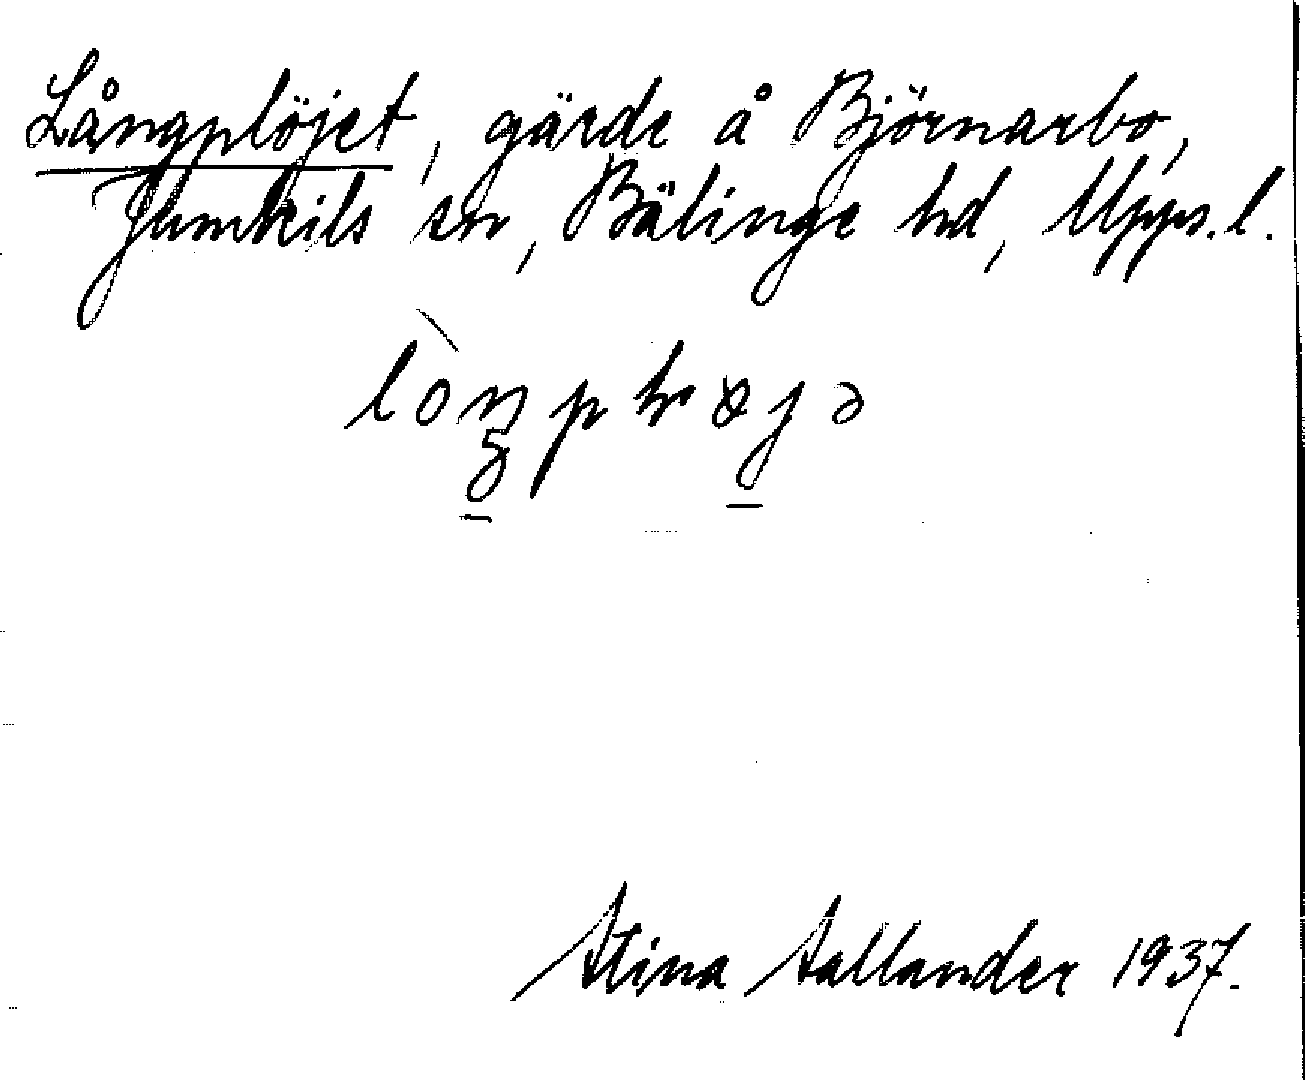 Långplöjet, gärde å Björnarbo,
Jumkils sn, Bälinge hd, Upps. l.
Stina Sallander 1937.